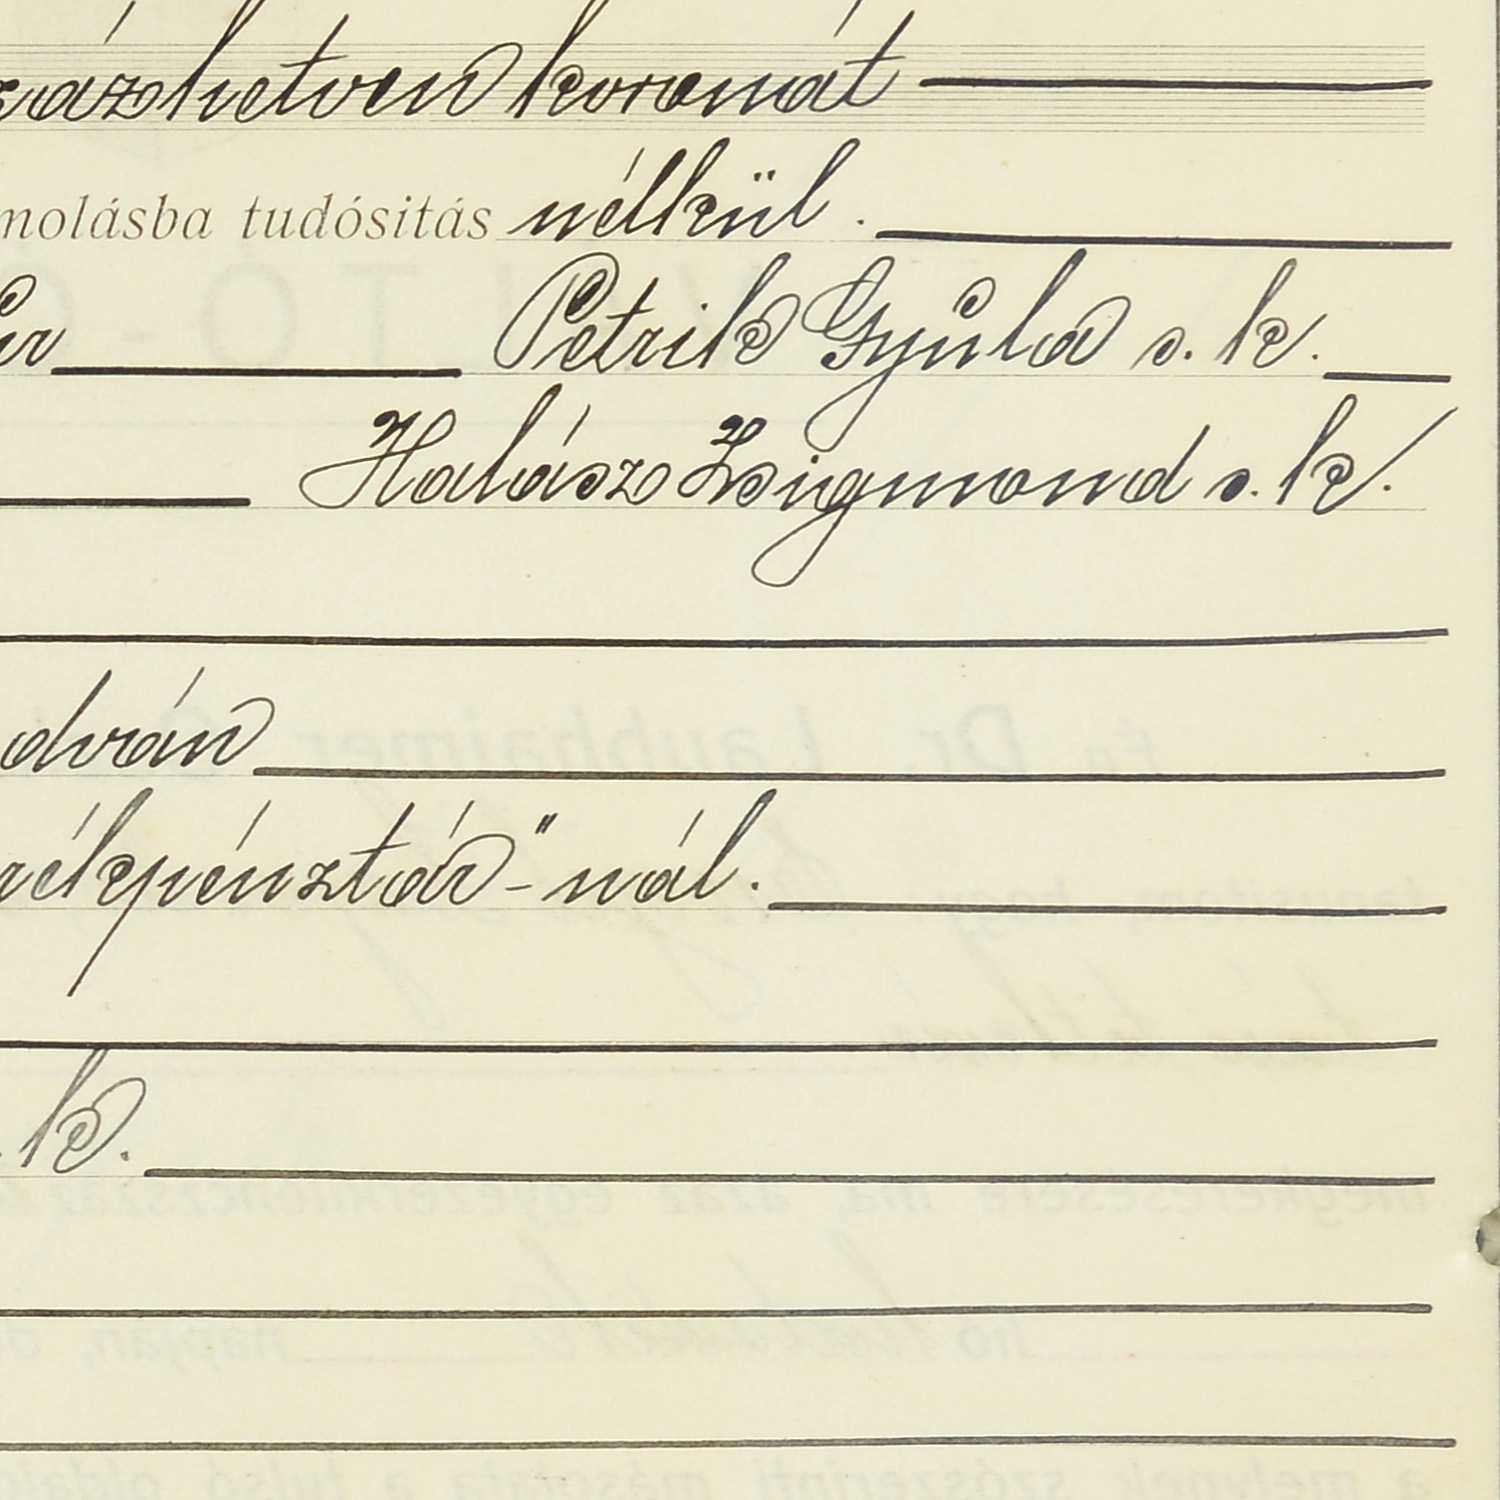 százhetven koronát
molásba tudósitás nélkül.
Petrik Gyula s. k.
Halász Zsigmond s. k.
udvrán
rékpénztár"-nál.
k.